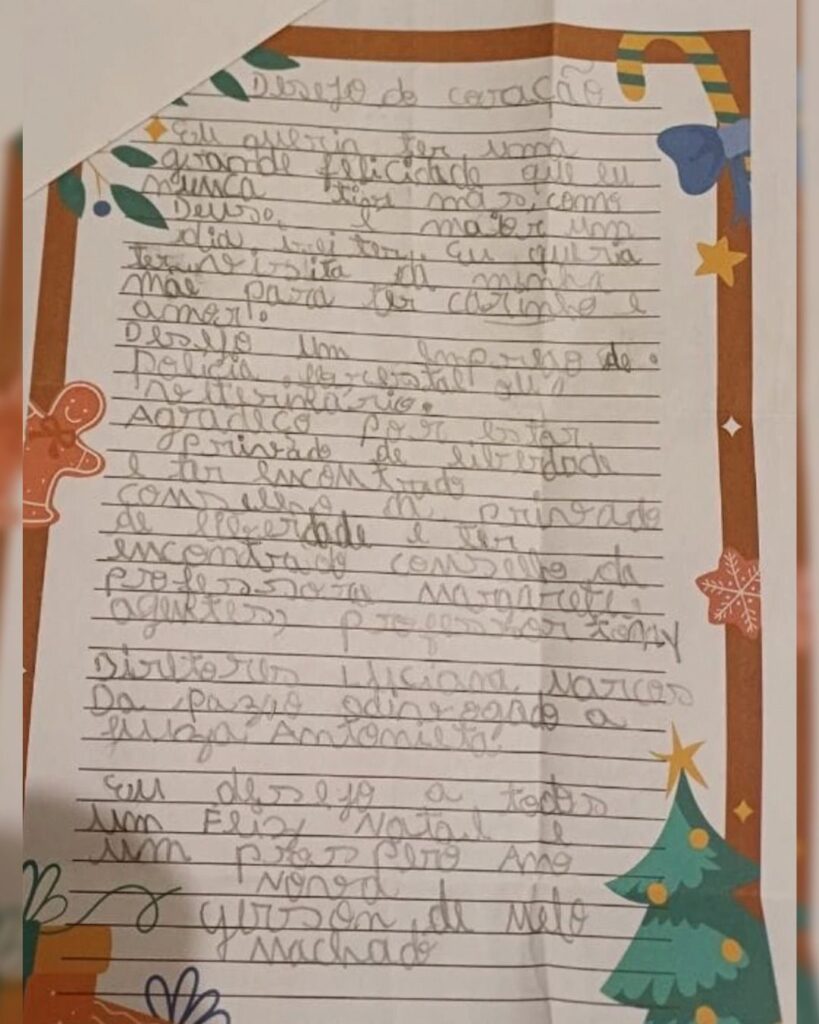 Desejo do coração
Eu queria ter uma
grande felicidade que eu
nunca tive mas, como
Deuso, e maior um
dia irei ter. Eu queria
ter visita da minha
mãe para ter carinho e
amor!.
Desejo um emprego de.
Policia forestal ou
veterinário.
Agradeço por estar
privado de liberdade
e ter encontrado
conselho em privado
de liberdade e ter
encontrado conselho da
professora Margareti,
agentes, professor tony
Diretores Luciana Marcos
Da pazio
juiza Antonieta.
Eu desejo a todos
um Feliz Natal e
um prospero Ano
Novo
gerson de Melo
Machado